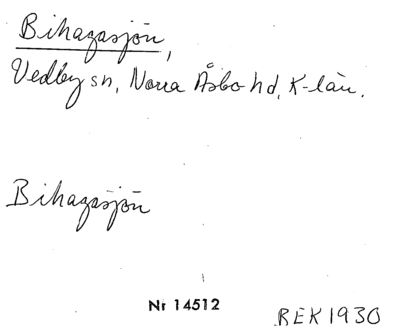 Bihagasjön,
Vedby sn, Norra Åsbo hd, K-län.
Bihagasjön
Nr 14512
REK 1930